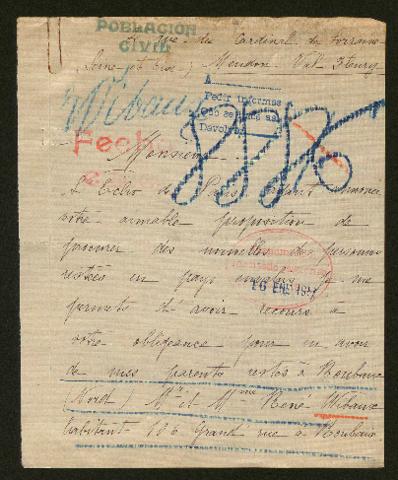 POBLACIÓN
CIVIL
de Cardinal de
Seine et Oise) Meudon. Val Fleury
A
Pedir informes
Devolver
Wibaux
Monsieur
L'Echo de Paris ayant annoncé
votre aimable proposition de
procurer des nouvelles des personnes
restées en pays envahis, je me
permets d'avoir recours à
votre obligeance pour en avoir
de mes parents restés à Roubaix
(Nord) Mr et Mme René Wibaux
habitant 186 Grand'rue à Roubaix.
16 ENE